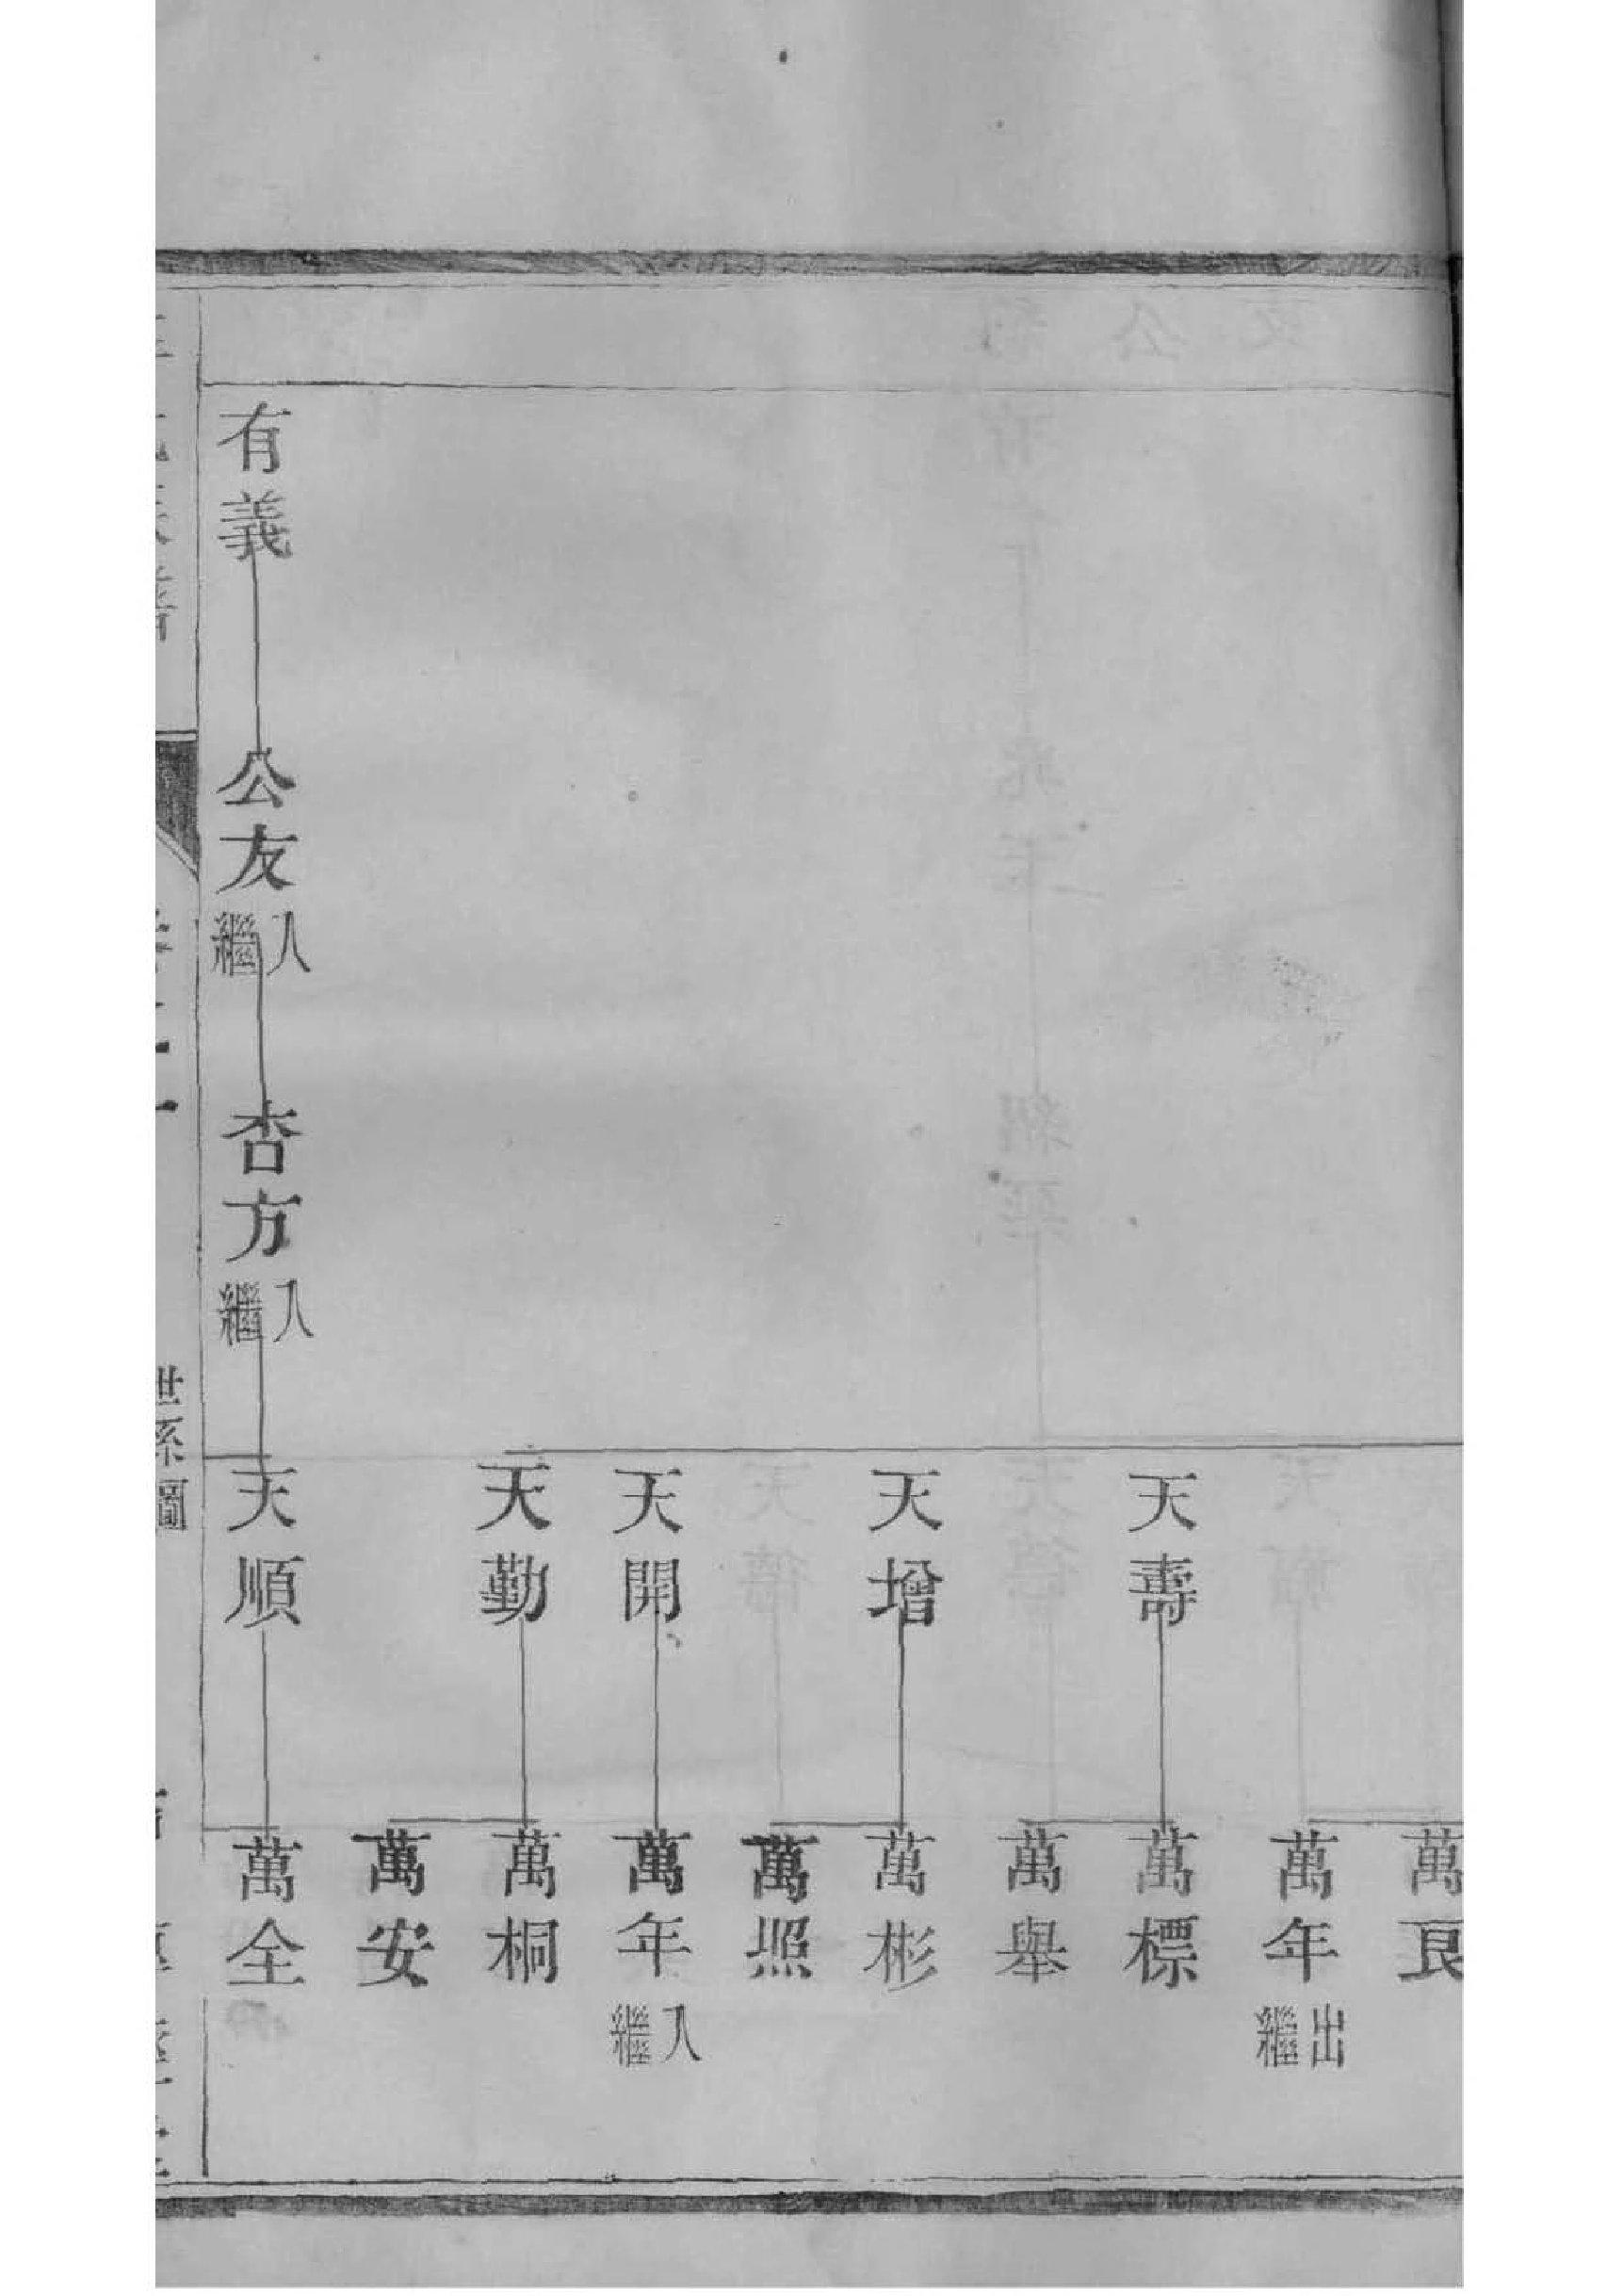 萬良
萬年出繼
天壽
萬標
萬舉
天增
萬彬
萬照
天開
萬年入繼
天勤
萬桐
萬安
有義
公友入繼
杏方入繼
天順
萬全
世系圖